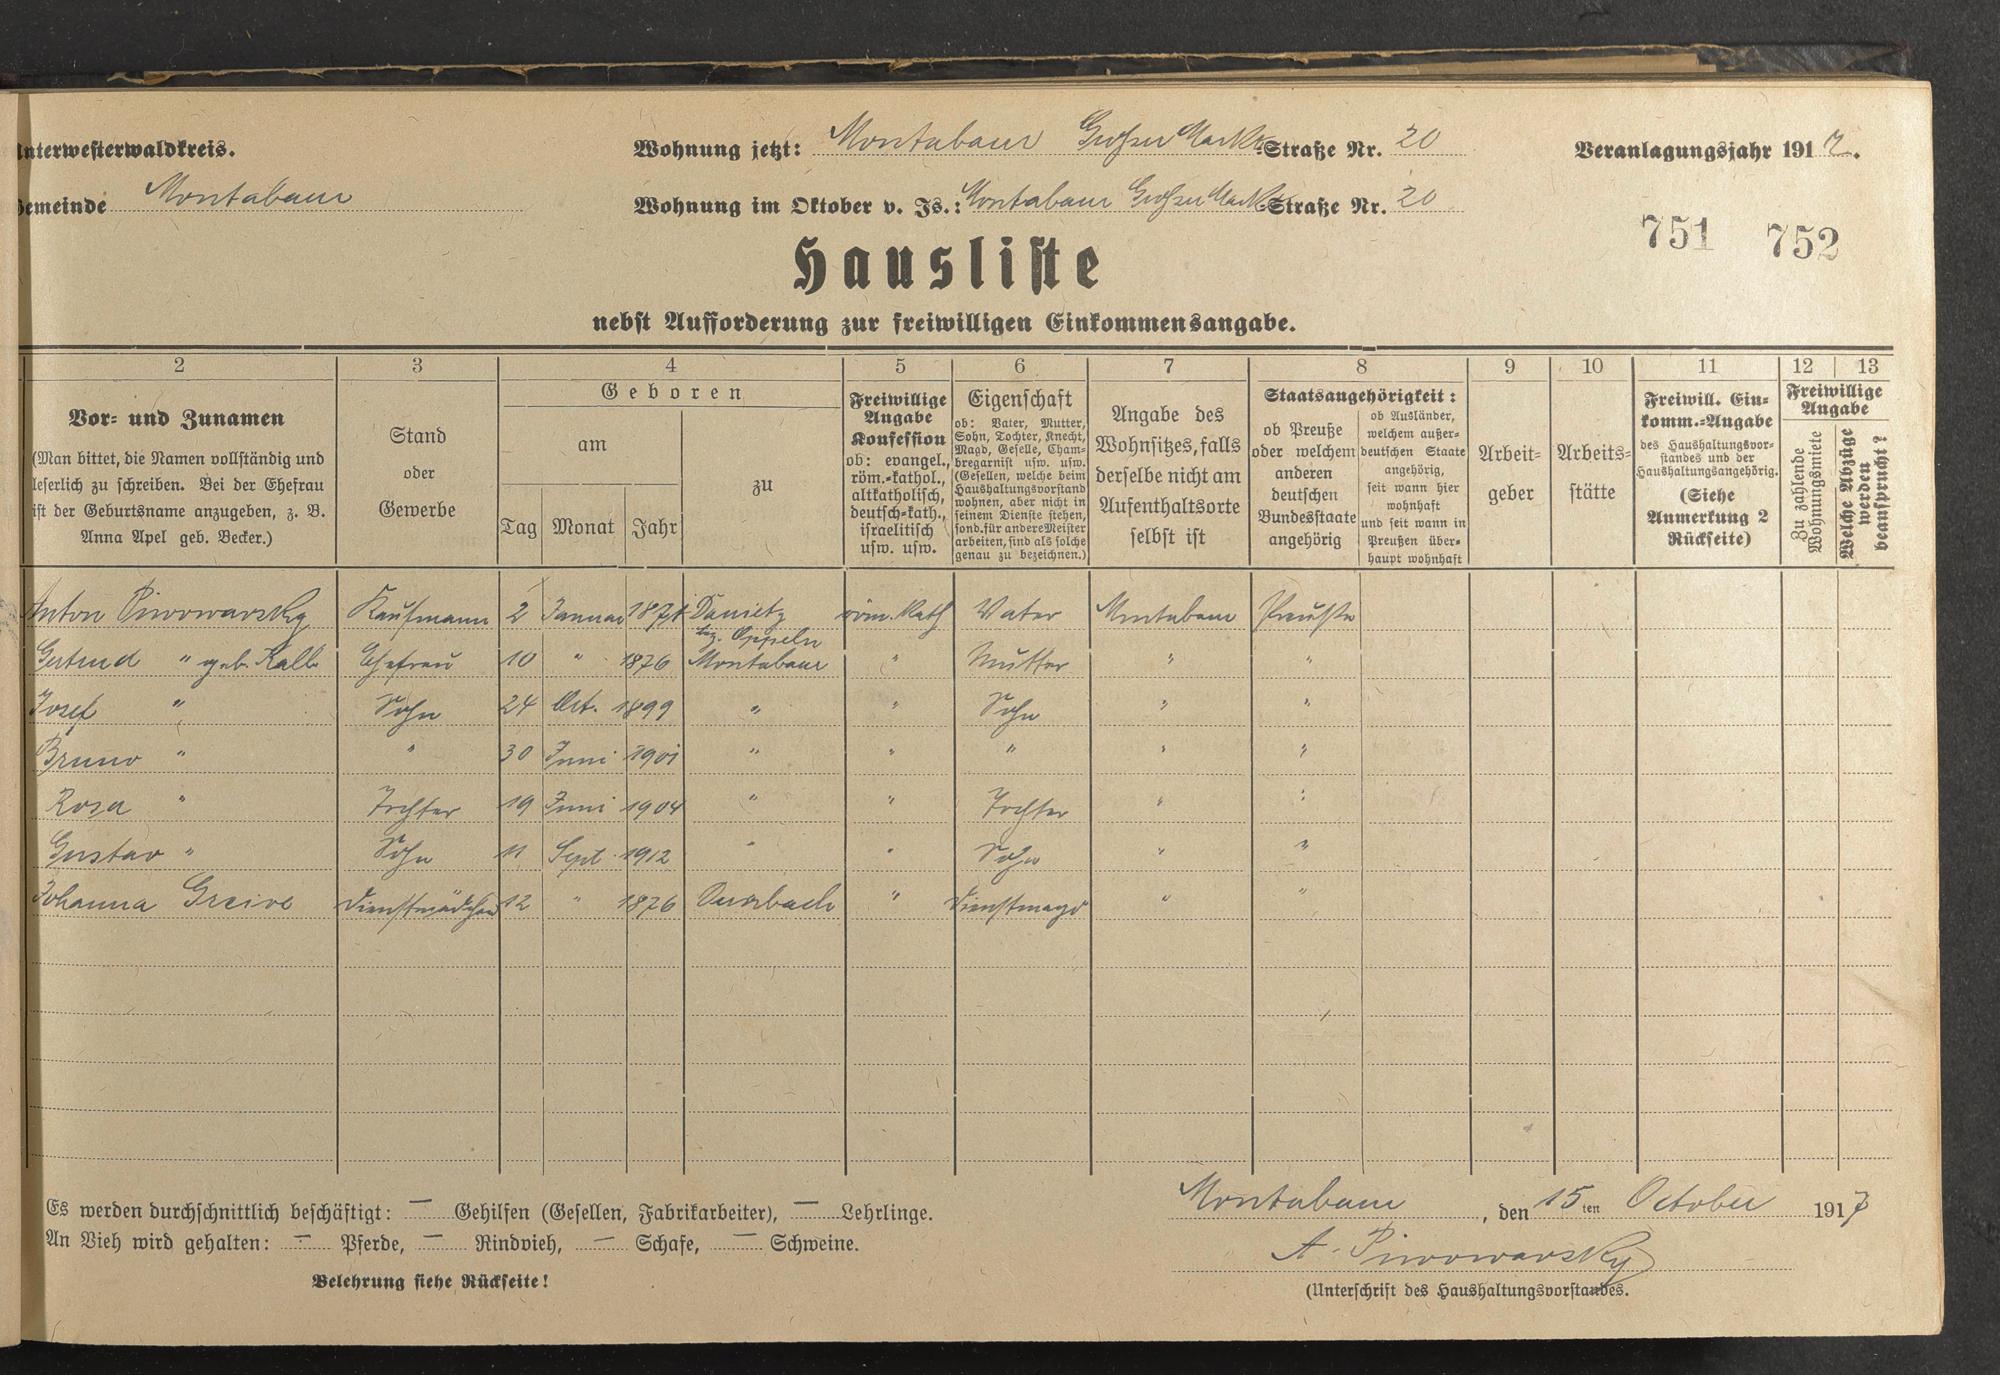 Unterwesterwaldkreis.
Wohnung jetzt: Montabaur Großer Markt-Straße Nr. 20
Veranlagungsjahr 1917.
Gemeinde Montabaur
Wohnung im Oktober v. Js.: Montabaur Großer Markt-Straße Nr. 20
751 752
Hausliste
nebst Aufforderung zur freiwilligen Einkommensangabe.
2 3 4 5 6 7 8 9 10 11 12 13
Vor- und Zunamen
(Man bittet, die Namen vollständig und
leserlich zu schreiben. Bei der Ehefrau
ist der Geburtsname anzugeben, z. B.
Anna Apel geb. Becker.)
Stand
oder
Gewerbe
Geboren
am
Tag Monat Jahr
zu
Freiwillige
Angabe
Konfession
ob: evangel.,
röm.-kathol.,
altkatholisch,
deutsch-kath.,
israelitisch
usw. usw.
Eigenschaft
ob: Vater, Mutter,
Sohn, Tochter, Knecht,
Magd, Geselle, Cham-
bregarnist usw. usw.
(Gesellen, welche beim
Haushaltungsvorstand
wohnen, aber nicht in
seinem Dienste stehen,
sond. für andere Meister
arbeiten, sind als solche
genau zu bezeichnen.)
Angabe des
Wohnsitzes, falls
derselbe nicht am
Aufenthaltsorte
selbst ist
Staatsangehörigkeit:
ob Preuße
oder welchem
anderen
deutschen
Bundesstaate
angehörig
ob Ausländer,
welchem außer-
deutschen Staate
angehörig,
seit wann hier
wohnhaft
und seit wann in
Preußen über-
haupt wohnhaft
Arbeit-
geber
Arbeits-
stätte
Freiwill. Ein-
komm.-Angabe
des Haushaltungsvor-
standes und der
Haushaltungsangehörig.
(Siehe
Anmerkung 2
Rückseite)
Freiwillige
Angabe
Zu zahlende
Wohnungsmiete
Welche Abzüge
werden
beansprucht?
Anton Piwowarsky Kaufmann 2 Januar 1871 Danietz röm. Kath Vater Montabaur Preuße
Bez. Oppeln
Gertrud " geb. Kalb Ehefrau 10 " 1876 Montabaur " Mutter " "
Josef " Sohn 24 Oct. 1899 " " Sohn " "
Bruno " " 30 Juni 1901 " " " " "
Rosa " Tochter 19 Juni 1904 " " Tochter " "
Gustav " Sohn 11 Sept. 1912 " " Sohn " "
Johanna Greive Dienstmädchen 12 " 1876 " Dienstmagd " "
Es werden durchschnittlich beschäftigt: — Gehilfen (Gesellen, Fabrikarbeiter), — Lehrlinge.
An Vieh wird gehalten: — Pferde, — Rindvieh, — Schafe, — Schweine.
Belehrung siehe Rückseite!
Montabaur, den 15ten October 1917
A. Piwowarsky
(Unterschrift des Haushaltungsvorstandes.